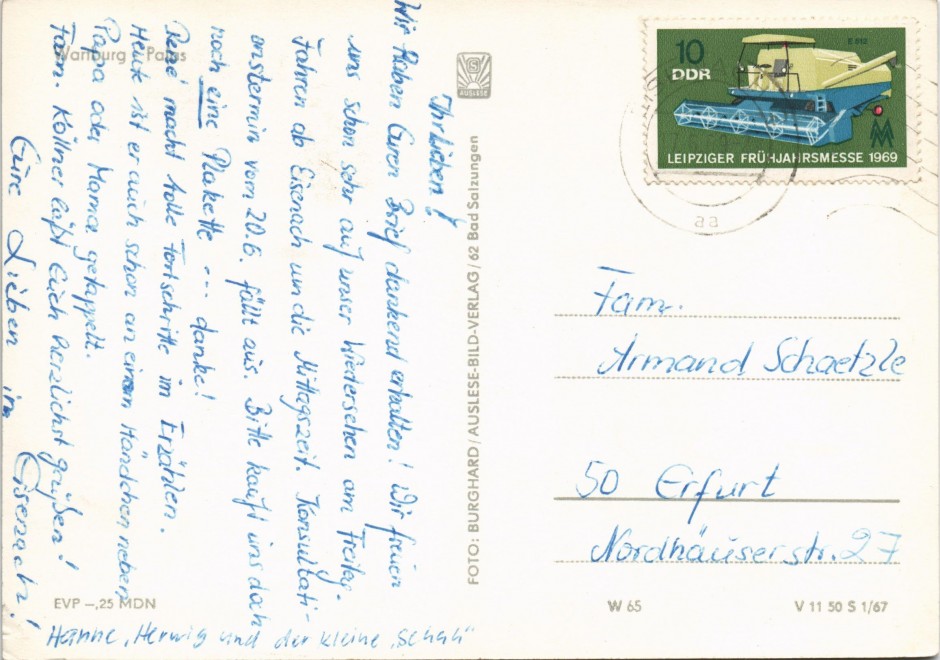 Wartburg - Palas
Ihr Lieben!
Wir haben Euren Brief dankend erhalten! Wir freuen
uns schon sehr auf unser Wiedersehen am Freitag.
Fahren ab Eisenach um die Mittagszeit. Konsultati-
onstermin vom 20.6. fällt aus. Bitte kauft uns doch
noch eine Plakette --- danke!
René macht tolle Fortschritte im Erzählen.
Heute ist er auch schon an einem Händchen neben
Papa oder Mama getappelt.
Fam. Köllner läßt Euch herzlichst grüßen!
Eure Lieben in Eisenach!
Hanne, Herwig und der kleine „Schah"
EVP –,25 MDN
AUSLESE
FOTO: BURGHARD/AUSLESE-BILD-VERLAG/62 Bad Salzungen
10
DDR
E 512
MM
LEIPZIGER FRÜHJAHRSMESSE 1969
aa
Fam.
Armand Schaetzle
50 Erfurt
Nordhäuserstr. 27
W 65
V 11 50 S 1/67